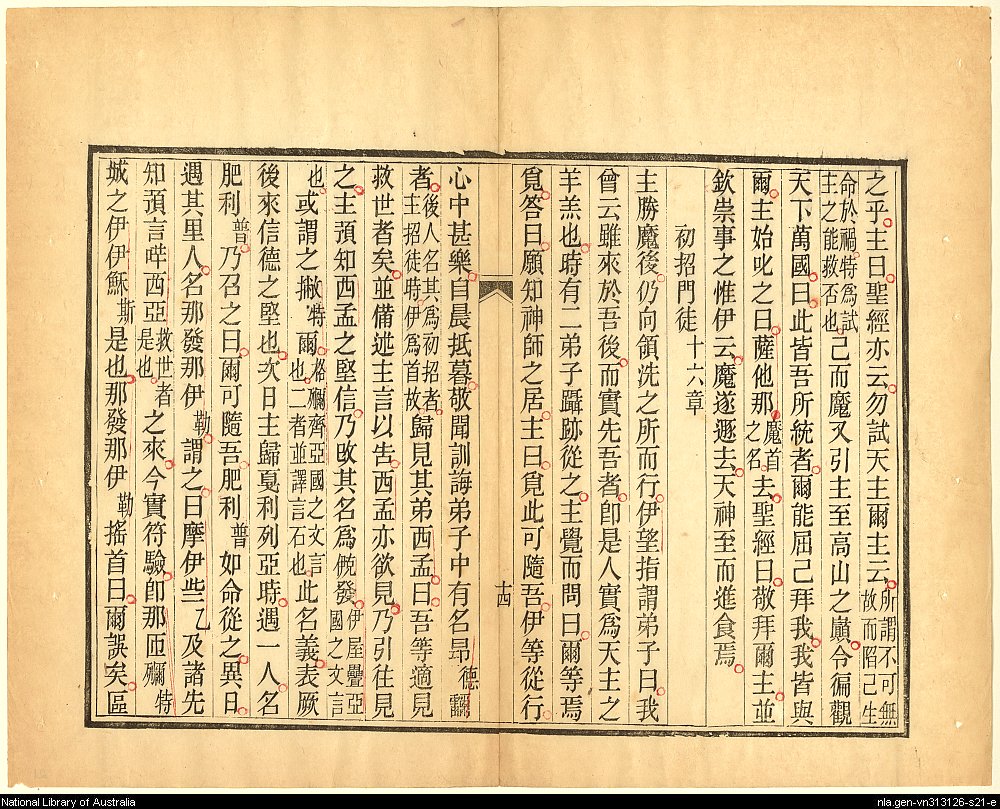 之乎主曰聖經亦云勿試天主爾主云所謂不可無故而陷己生
命於禍特為試主之能救否也己而魔又引主至高山之巓令徧觀
天下萬國曰此皆吾所統者爾能屈己拜我我皆與
爾主始叱之曰薩他那魔首之名去聖經曰敬拜爾主並
欽崇事之惟伊云魔遂遯去天神至而進食焉
初招門徒 十六章
主勝魔後仍向領洗之所而行伊望指謂弟子曰我
曾云雖來於吾後而實先吾者卽是人實爲天主之
羊羔也時有二弟子躡跡從之主覺而問曰爾等焉
覔答曰願知神師之居主曰覔此可隨吾伊等從行
十四
心中甚樂自晨抵暮敬聞訓誨弟子中有名昂德
者後人名其為初招者主招徒時伊為首故歸見其弟西孟曰吾等適見
救世者矣並備述主言以告西孟亦欲見乃引往見
之主預知西孟之堅信乃改其名爲發伊屋疊亞國之文言
也或謂之撇特爾格彌齊亞國之文言也二者並譯言石也此名義表厥
後來信德之堅也次日主歸戛利列亞時遇一人名
肥利普乃召之曰爾可隨吾肥利普如命從之異日
遇其里人名那發那伊勒謂之曰摩伊些乙及諸先
知預言西亞救世者是也之來今實符驗卽那匝特
城之伊伊穌斯是也那發那伊勒搖首曰爾誤矣區
National Library of Australia
nla.gen-vn313126-s21-e